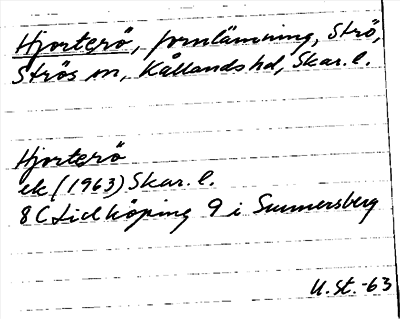 Hjorterö, fornlämning, Strö,
Strös sn, Kållands hd, Skar. l.
Hjorterö
ek (1963) Skar. l.
8C Lidköping 9 i Sunnersberg
U. St. -63